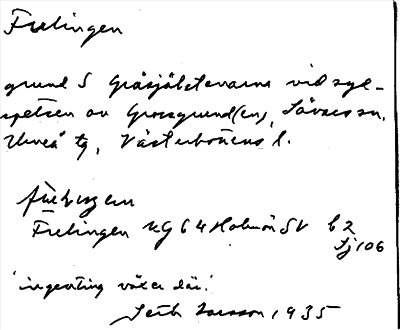 Frelingen
grund S Gråsjälstenarna vid syd-
spetsen av Grossgrund(en), Sävars sn,
Umeå tg, Västerbottens l.
Frelingen KG 64 Holmön SV b 2
Sj 106
'ingenting växer där.'
Larsson 1935